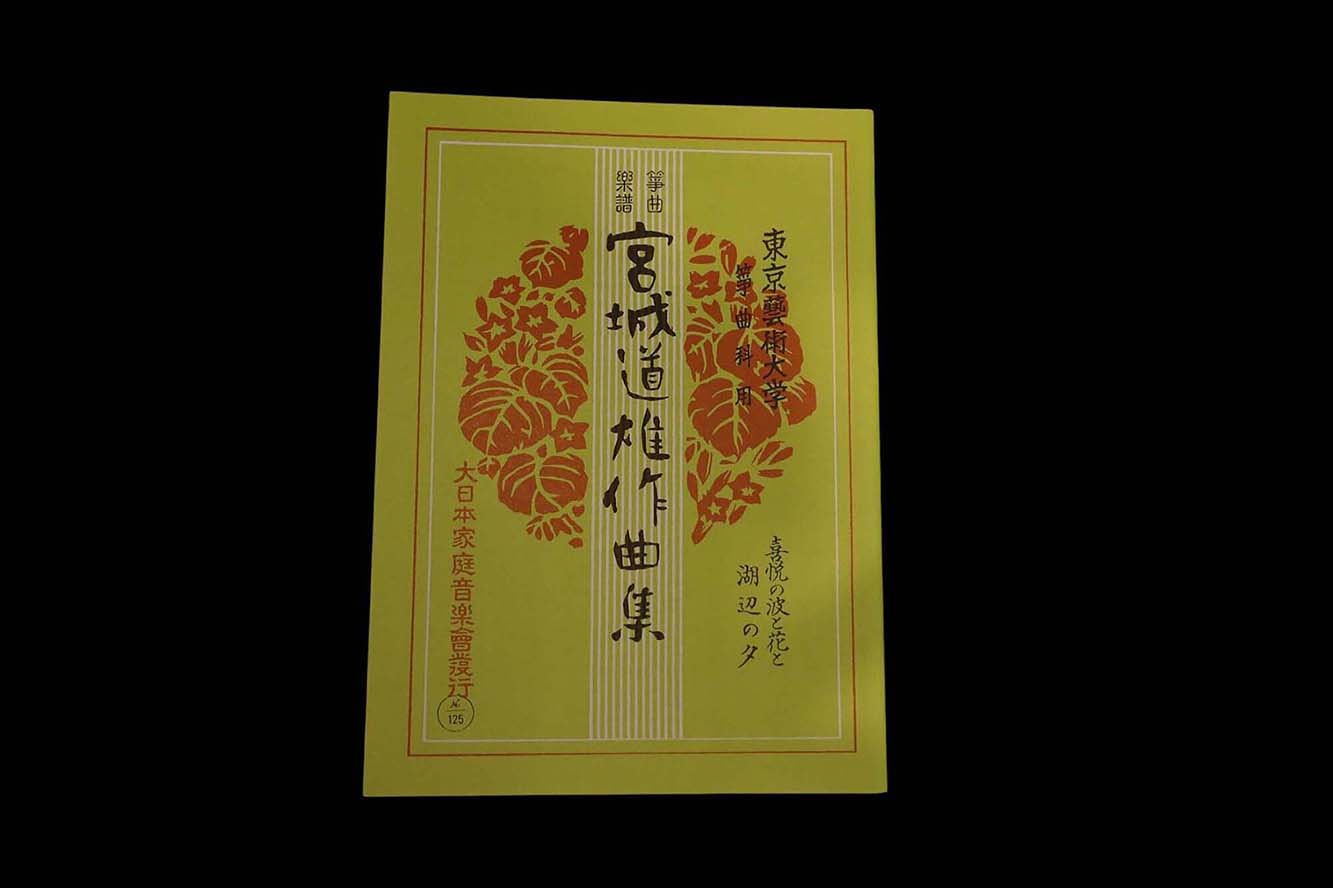 東京藝術大学
箏曲科用
喜悦の波と花と
湖辺の夕
箏曲
樂譜
宮城道雄作曲集
大日本家庭音楽會発行
№
125